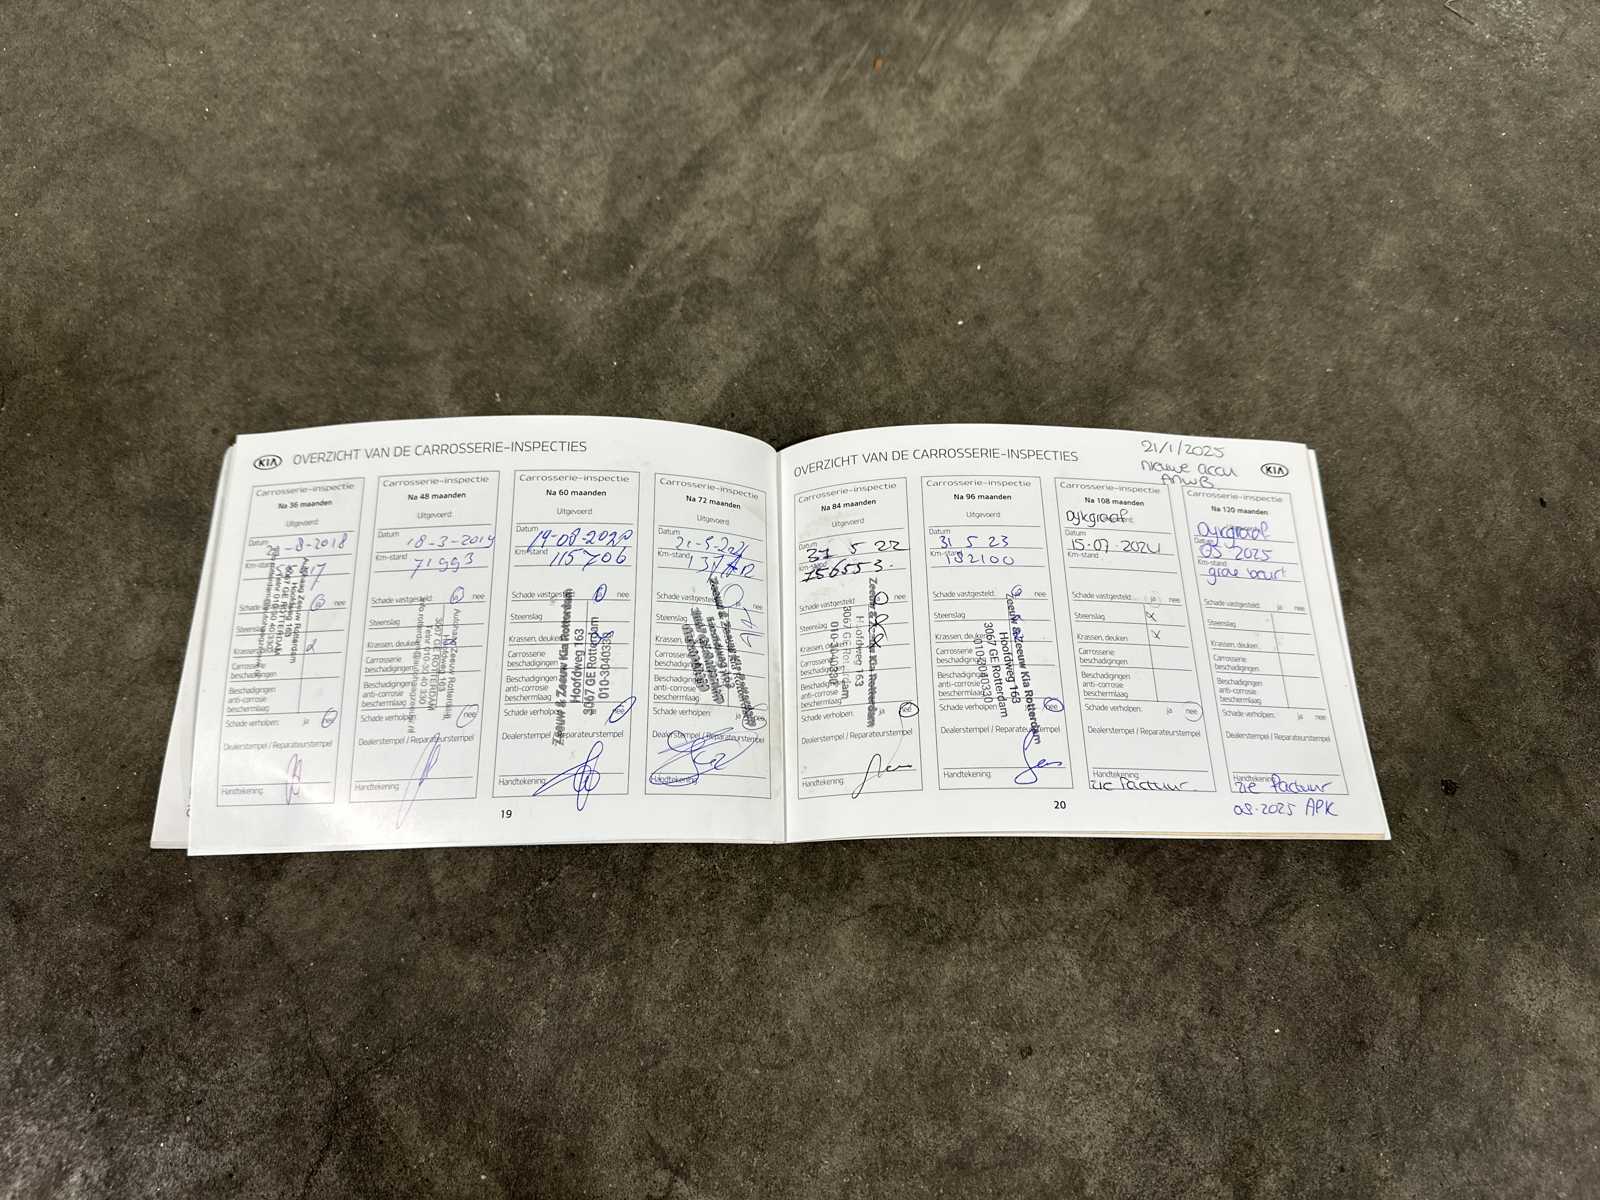 KIA OVERZICHT VAN DE CARROSSERIE-INSPECTIES
Carrosserie-inspectie
Na 36 maanden
Uitgevoerd:
Datum
-8-2018
Km-stand
Schade vastgesteld: ja nee
Steenslag
Krassen, deuken
Carrosserie
beschadigingen
Beschadigingen
anti-corrosie
beschermlaag
Schade verholpen: ja nee
Dealerstempel / Reparateurstempel
Handtekening:
Autohaag Zeeuw Rotterdam
Hoofdweg 163
3067 GE ROTTERDAM
Carrosserie-inspectie
Na 48 maanden
Uitgevoerd:
Datum
18-3-2019
Km-stand
71993
Schade vastgesteld: ja nee
Steenslag
Krassen, deuken
Carrosserie
beschadigingen
Beschadigingen
anti-corrosie
beschermlaag
Schade verholpen: nee
Dealerstempel / Reparateurstempel
Handtekening:
Autohaag Zeeuw Rotterdam
Hoofdweg 163
3067 GE ROTTERDAM
Carrosserie-inspectie
Na 60 maanden
Uitgevoerd:
Datum
19-08-2020
Km-stand
115706
Schade vastgesteld: ja nee
Steenslag
Krassen, deuken
Carrosserie
beschadigingen
Beschadigingen
anti-corrosie
beschermlaag
Schade verholpen: nee
Dealerstempel / Reparateurstempel
Handtekening:
Zeeuw & Zeeuw Kia Rotterdam
Hoofdweg 163
3067 GE Rotterdam
010-3040338
Carrosserie-inspectie
Na 72 maanden
Uitgevoerd:
Datum
Km-stand
Schade vastgesteld: nee
Steenslag
Krassen, deuken
Carrosserie
beschadigingen
Beschadigingen
anti-corrosie
beschermlaag
Schade verholpen: ja nee
Dealerstempel / Reparateurstempel
Handtekening:
Zeeuw & Zeeuw Kia Rotterdam
19
OVERZICHT VAN DE CARROSSERIE-INSPECTIES KIA
21/1/2025
nieuwe accu
ANWB
Carrosserie-inspectie
Na 84 maanden
Uitgevoerd:
Datum
31 5 22
Km-stand
156553.
Schade vastgesteld: ja nee
Steenslag
Krassen, deuken
Carrosserie
beschadigingen
Beschadigingen
anti-corrosie
beschermlaag
Schade verholpen: ja nee
Dealerstempel / Reparateurstempel
Handtekening:
Zeeuw & Zeeuw Kia Rotterdam
Hoofdweg 163
3067 GE Rotterdam
Carrosserie-inspectie
Na 96 maanden
Uitgevoerd:
Datum
31 5 23
Km-stand
182100
Schade vastgesteld: ja nee
Steenslag
Krassen, deuken
Carrosserie
beschadigingen
Beschadigingen
anti-corrosie
beschermlaag
Schade verholpen: ja nee
Dealerstempel / Reparateurstempel
Handtekening:
Zeeuw & Zeeuw Kia Rotterdam
Hoofdweg 163
3067 GE Rotterdam
010-3040330
Carrosserie-inspectie
Na 108 maanden
Dykgraaf
Datum
15-07-2024
Km-stand
Schade vastgesteld: ja nee
Steenslag x
Krassen, deuken x
Carrosserie
beschadigingen
Beschadigingen
anti-corrosie
beschermlaag
Schade verholpen: ja nee
Dealerstempel / Reparateurstempel
Handtekening:
zie factuur.
Carrosserie-inspectie
Na 120 maanden
Uitgevoerd:
Dykgraaf
Datum
05 2025
Km-stand
grote beurt
Schade vastgesteld: ja nee
Steenslag
Krassen, deuken
Carrosserie
beschadigingen
Beschadigingen
anti-corrosie
beschermlaag
Schade verholpen: ja nee
Dealerstempel / Reparateurstempel
Handtekening:
zie factuur
08-2025 APK
20